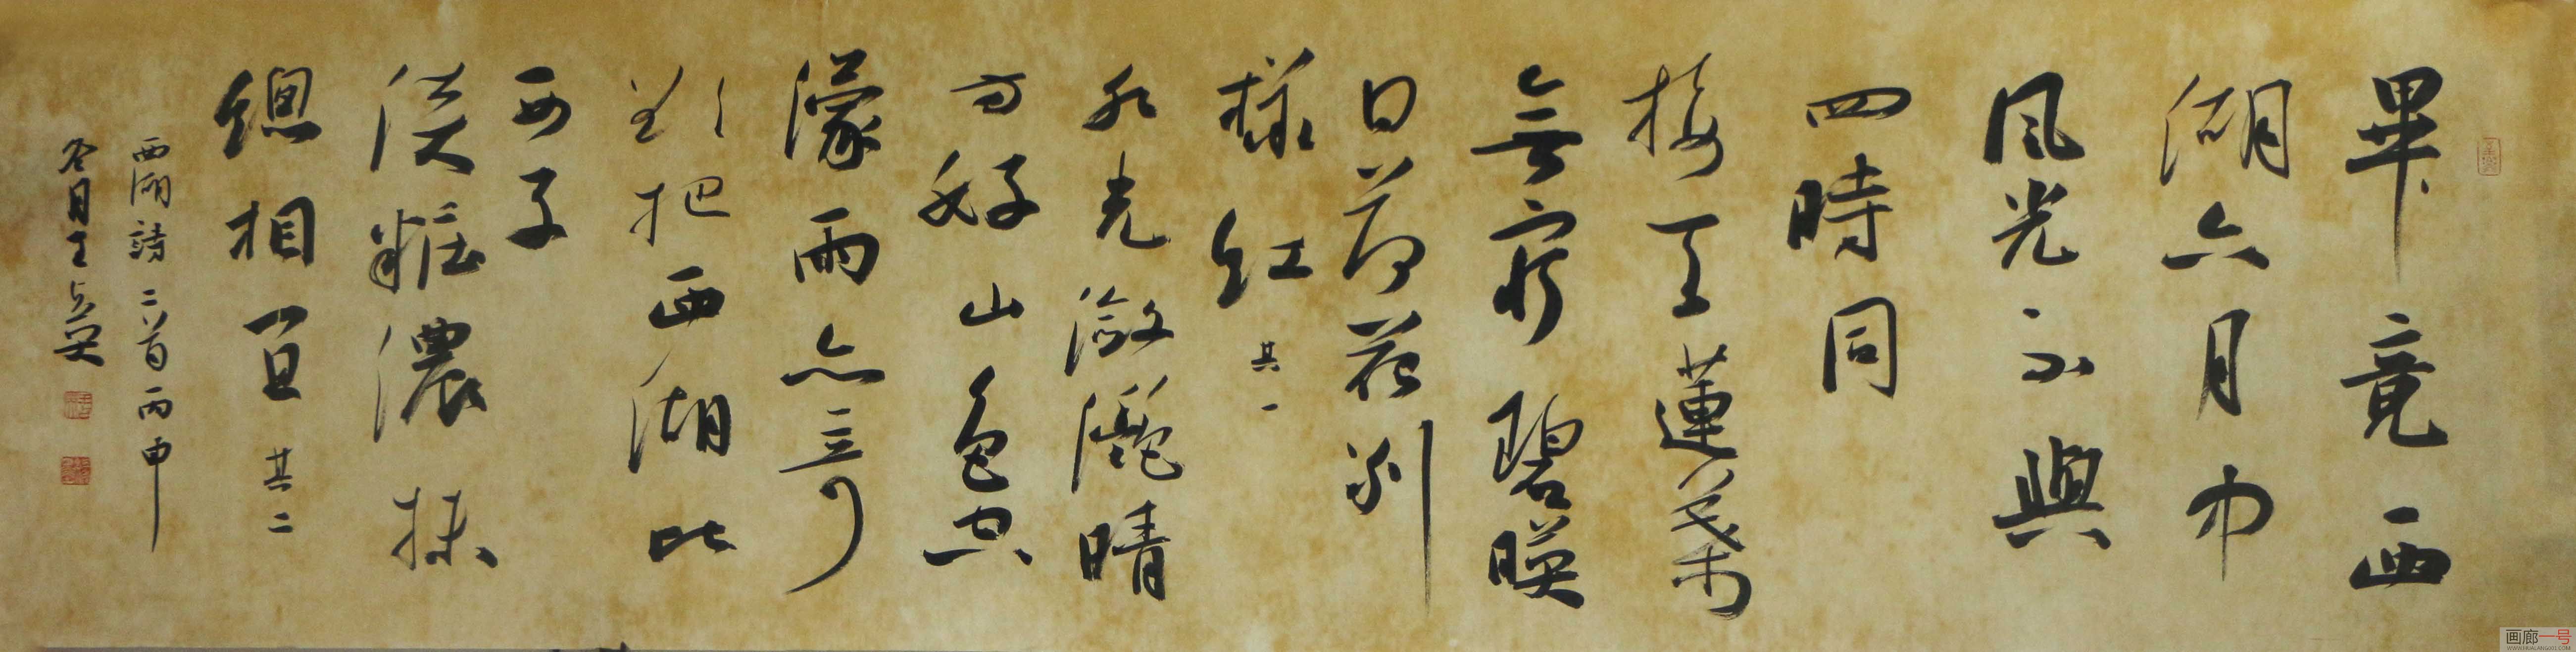 畢竟西
湖六月中
風光不與
四時同
接天蓮葉
無窮碧映
日荷花別
樣紅 其一
水光瀲灩晴
方好山色空
濛雨亦奇
欲把西湖比
西子
淡粧濃抹
總相宜 其二
西湖詩二首丙申
冬月
画廊一号